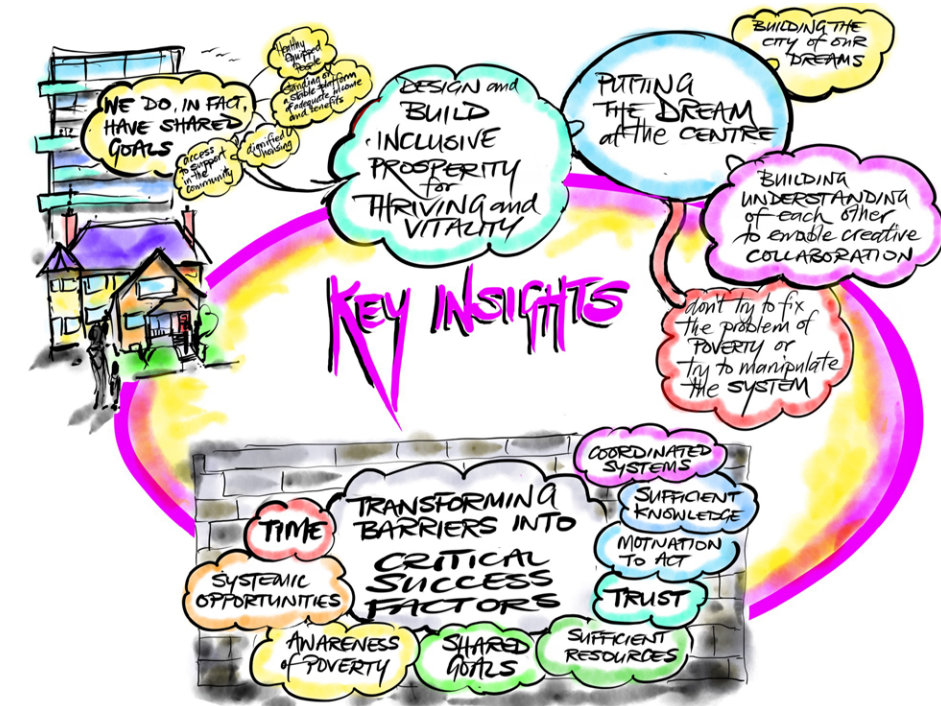 WE DO, IN FACT,
HAVE SHARED
GOALS
Healthy
Equipped
People
Standing on
a stable platform
of adequate income
and benefits
dignified
housing
access
to support
in the
community
DESIGN and
BUILD
INCLUSIVE
PROSPERITY
for
THRIVING and
VITALITY
PUTTING
THE DREAM
at the CENTRE
BUILDING THE
CITY of OUR
DREAMS
BUILDING
UNDERSTANDING
of each other
to enable creative
COLLABORATION
don't try to fix
the problem of
POVERTY or
try to manipulate
the SYSTEM
KEY INSIGHTS
TRANSFORMING
BARRIERS INTO
CRITICAL
SUCCESS
FACTORS
COORDINATED
SYSTEMS
SUFFICIENT
KNOWLEDGE
MOTIVATION
TO ACT
TRUST
SUFFICIENT
RESOURCES
SHARED
GOALS
AWARENESS
of POVERTY
SYSTEMIC
OPPORTUNITIES
TIME